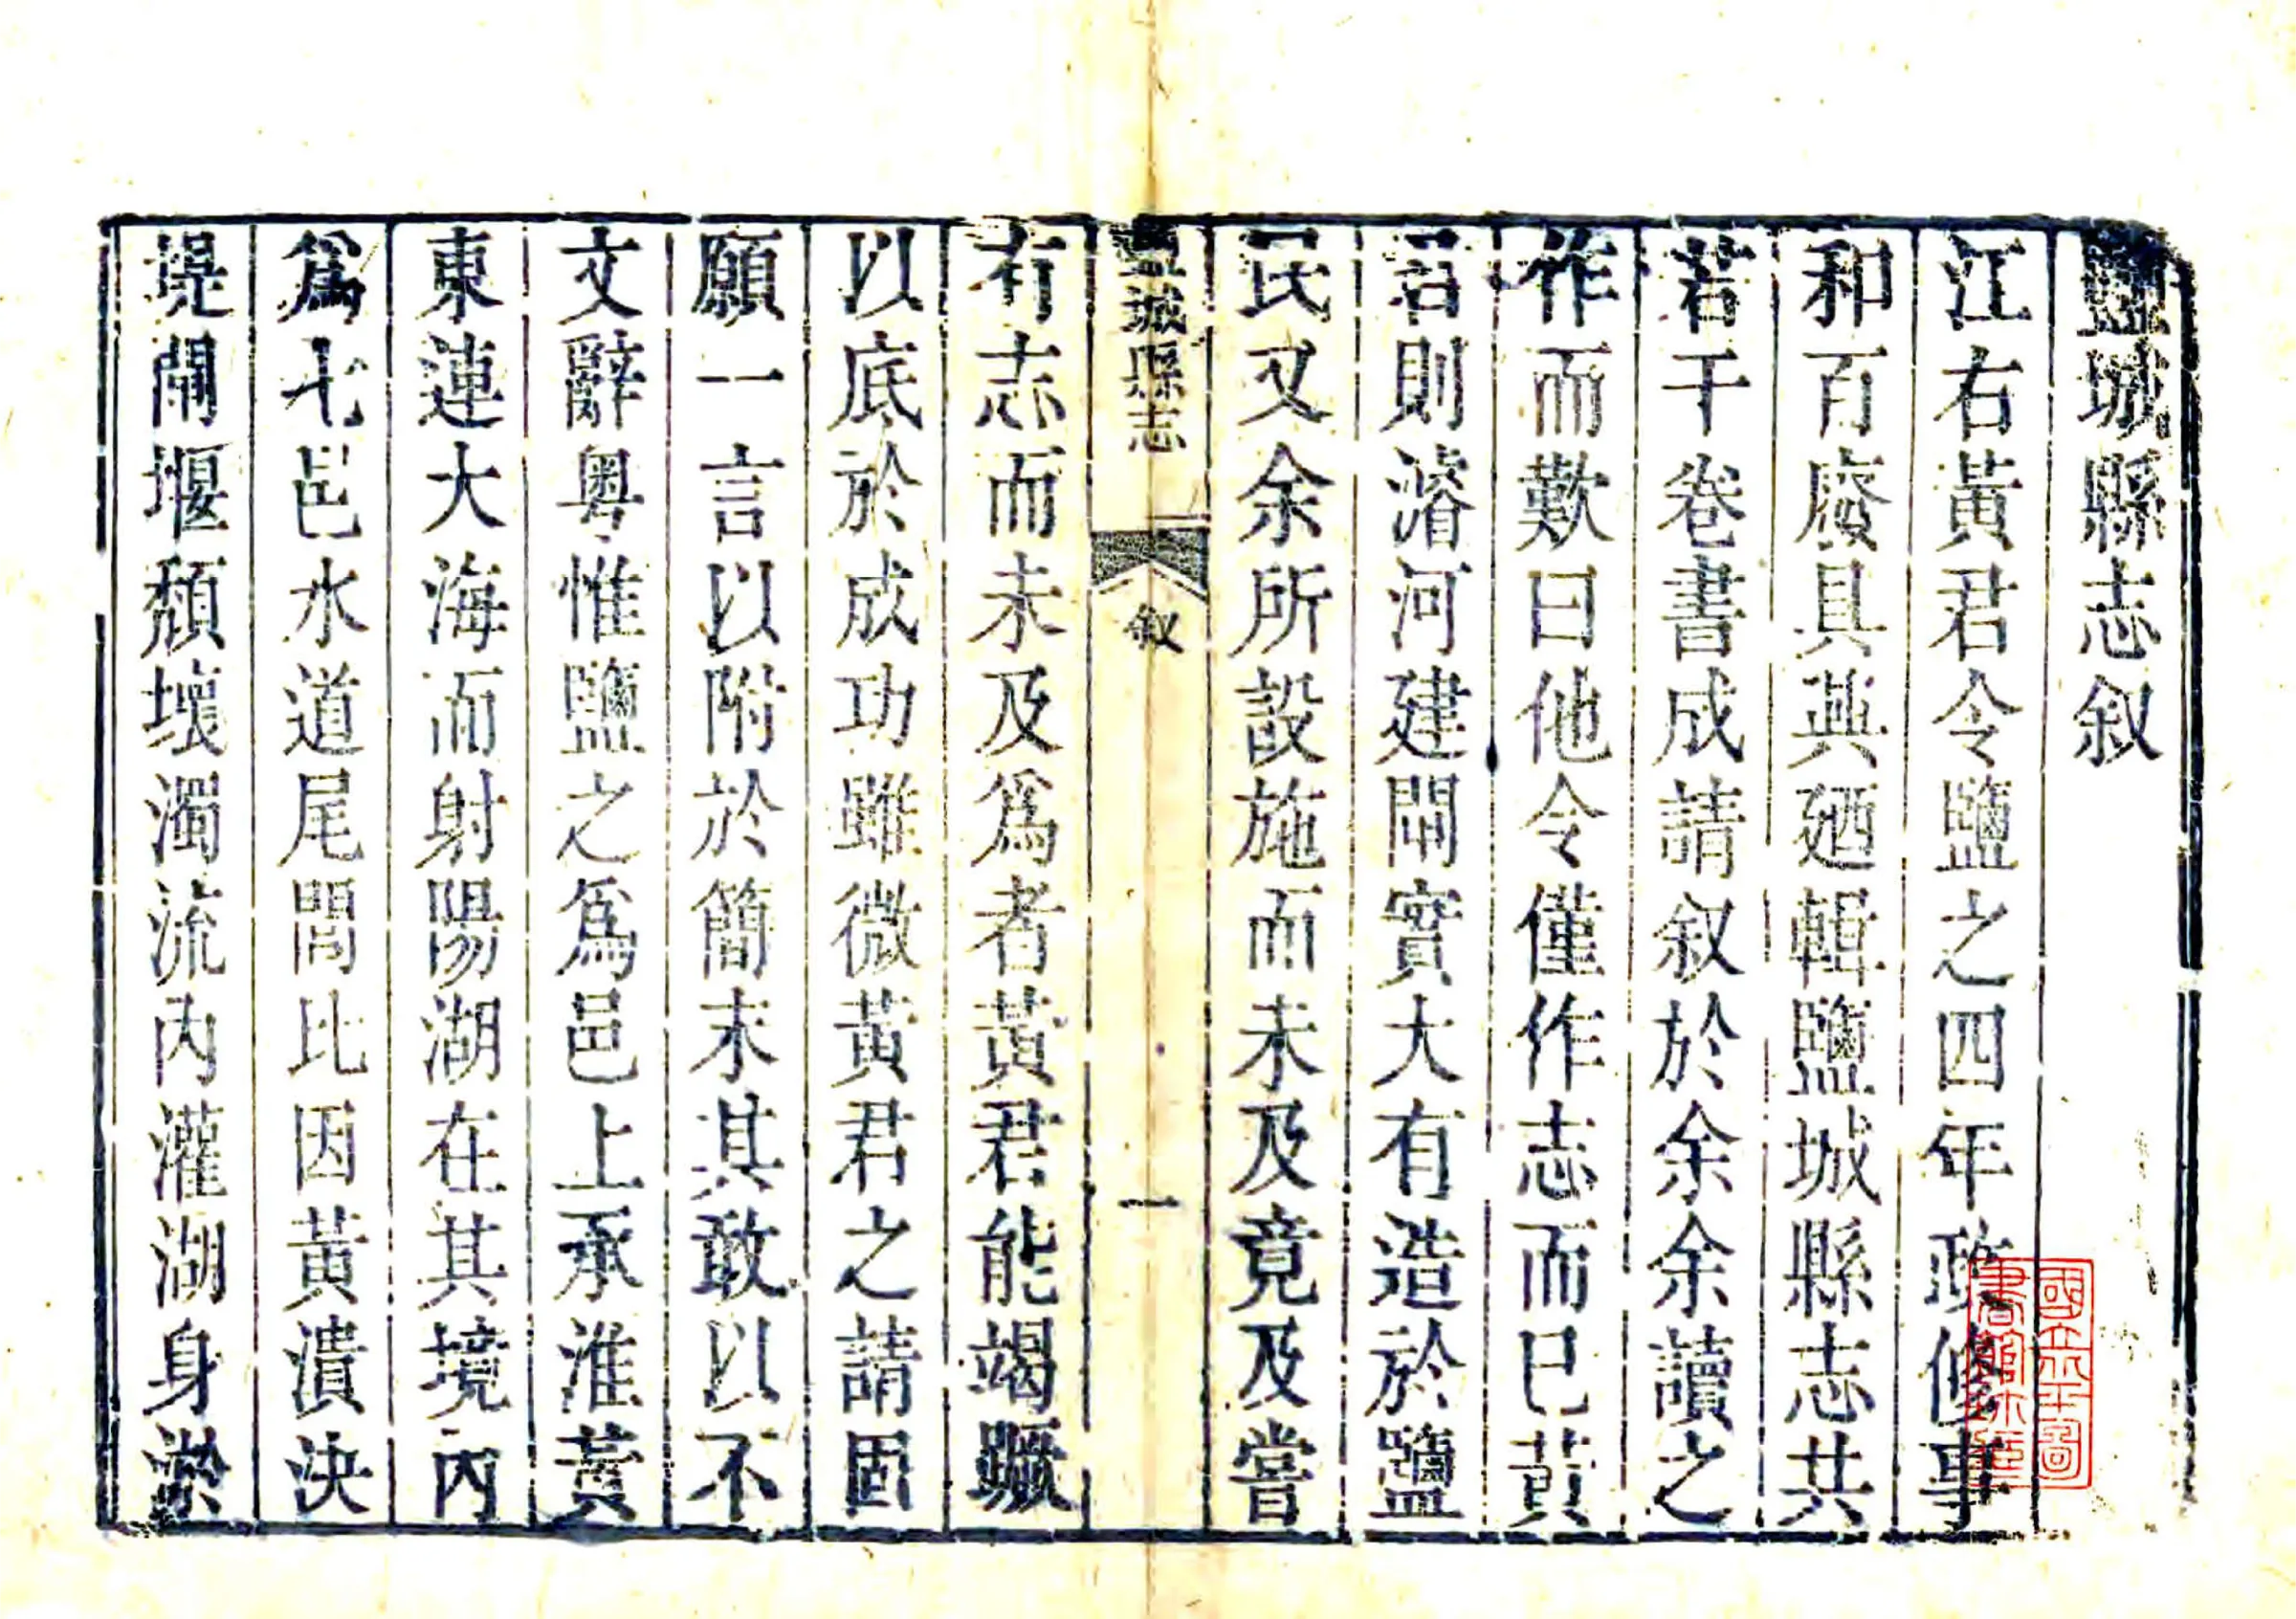 鹽城縣志叙
江右黃君令鹽之四年政修事
和百廢具興廼輯鹽城縣志共
若干卷書成請叙於余余讀之
作而歎曰他令僅作志而已黃
君則濬河建閘實大有造於鹽
民又余所設施而未及竟及嘗
鹽城縣志
叙
一
有志而未及爲者黃君能竭蹶
以底於成功雖微黃君之請固
願一言以附於簡末其敢以不
文辭粤惟鹽之爲邑上承淮黃
東連大海而射陽湖在其境內
爲七邑水道尾閭比因黃潰決
堤閘堰頽壞濁流內灌湖身淤
國立北平圖
書館珍藏